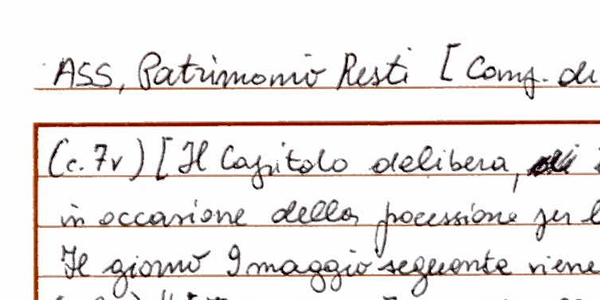 ASS, Patrimonio Resti [Comp. di
(c. 7v) [Il Capitolo delibera,
in occasione della pocessione per l
Il giorno 9 maggio seguente viene